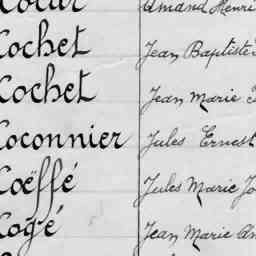 Amand Henri
Cochet Jean Baptiste
Cochet Jean Marie
Coconnier Jules Ernest
Coëffé Jules Marie
Cogé Jean Marie